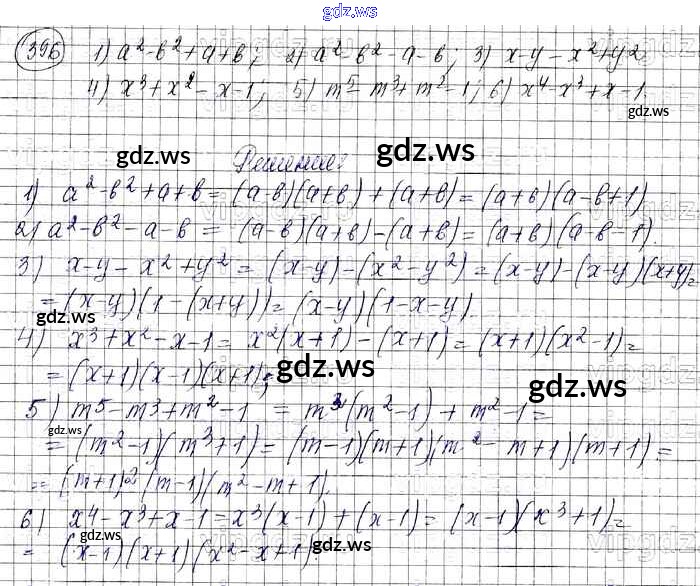 gdz.ws
396 1) a²-b²+a+b; 2) a²-b²-a-b; 3) x-y-x²+y²
4) x³+x²-x-1; 5) m⁵-m³+m²-1; 6) x⁴-x³+x-1.
gdz.ws
Решение:
gdz.ws
gdz.ws
1) a²-b²+a+b=(a-b)(a+b)+(a+b)=(a+b)(a-b+1)
2) a²-b²-a-b=(a-b)(a+b)-(a+b)=(a+b)(a-b-1).
3) x-y-x²+y²=(x-y)-(x²-y²)=(x-y)-(x-y)(x+y)=
=(x-y)(1-(x+y))=(x-y)(1-x-y)
gdz.ws
gdz.ws
4) x³+x²-x-1=x²(x+1)-(x+1)=(x+1)(x²-1)=
=(x+1)(x-1)(x+1);
gdz.ws
gdz.ws
5) m⁵-m³+m²-1=m³(m²-1)+m²-1=
gdz.ws
=(m²-1)(m³+1)=(m-1)(m+1)(m²-m+1)(m+1)=
=(m+1)²(m-1)(m²-m+1).
6) x⁴-x³+x-1=x³(x-1)+(x-1)=(x-1)(x³+1)=
gdz.ws
=(x-1)(x+1)(x²-x+1).
gdz.ws
gdz.ws